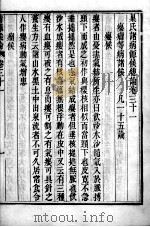 巢氏諸病源候總論卷三十一
癭瘤等病諸候 凡一十五論
癭候
癭者由憂恚氣結所生亦曰飲沙水沙隨氣入於脈搏
頸下而成之初作與櫻核相似而當頸下也皮寬不急
垂搥搥然是也恚氣結成癭者但垂核搥搥無脈也飲
沙水成癭者有核無根浮動在皮中又云有三種
癭有血癭可破之有息肉癭可割之有氣癭可具針之
養生方云諸山水黑土中出泉流者不可久居常食令
人作癭病動氣增患
瘤候